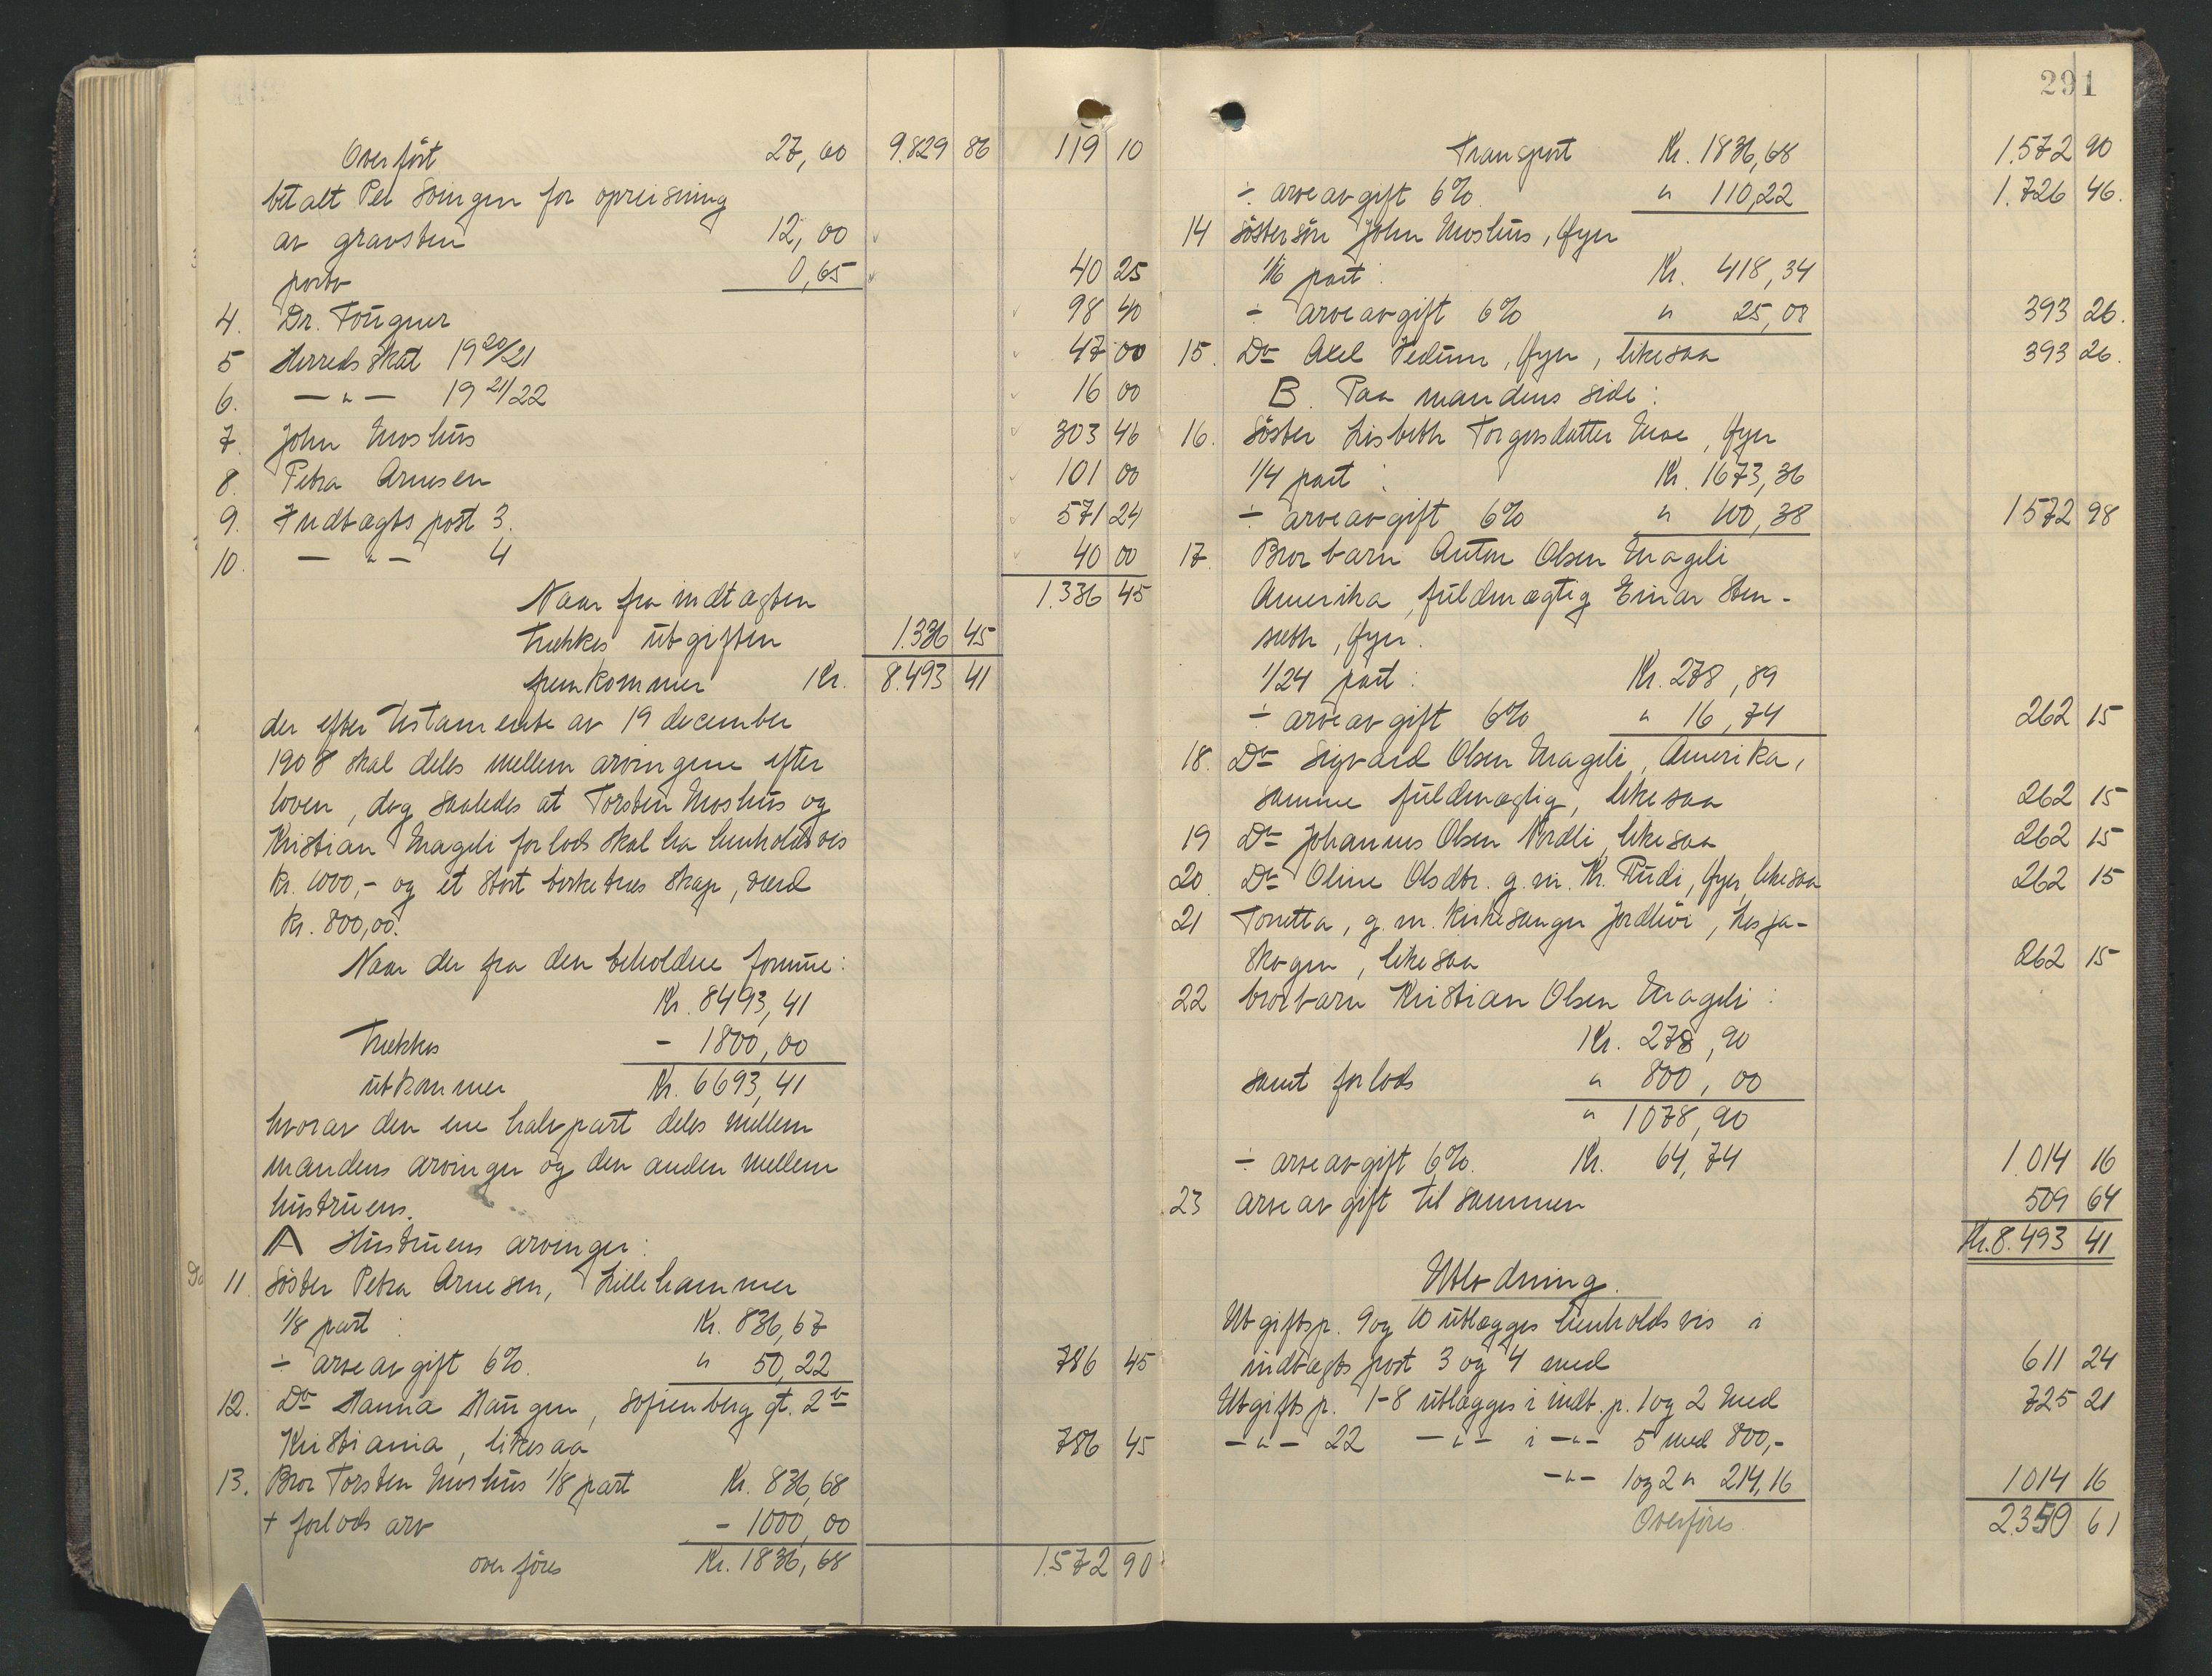 Overført 27,00 9.829 86 119 10
betalt Per Svingen for opreisning
av gravsten 12,00
porto 0,65 40 25
4. Dr. Fougner 98 40
5 Herredsskat 1920/21 47 00
6. —"— 1921/22 16 00
7. John Moshus 303 46
8. Petra Arnesen 101 00
9. Indtægts post 3. 571 24
10. —"— 4 40 00
Naar fra indtægten 1.336 45
trækkes utgiften 1.336 45
fremkommer Kr. 8.493 41
der efter testamente av 19 december
1908 skal deles mellem arvingene efter
loven, dog saaledes at Torsten Moshus og
Kristian Mageli forlods skal ha henholdsvis
kr. 1000,- og et stort birketræs skap, værd
kr. 800,00.
Naar der fra den beholdne formue:
Kr. 8493,41
trækkes - 1800,00
utkommer Kr. 6693,41
hvorav den ene halvpart deles mellem
mandens arvinger og den anden mellem
hustruens.
A Hustruens arvinger:
11. Søster Petra Arnesen, Lillehammer
1/8 part: Kr. 836,67
÷ arveavgift 6%. " 50,22 786 45
12. Do Hanna Haugen, Sofienberg gt. 2b
Kristiania, likesaa 786 45
13. Bror Torsten Moshus 1/8 part Kr. 836,68
+ forlods arv - 1000,00
overføres Kr. 1836,68 1.572 90
291
Transport Kr. 1836,68 1.572 90
÷ arveavgift 6%. " 110,22 1.726 46.
14 Søstersøn John Moshus, Øyer
1/16 part: Kr. 418,34
÷ arveavgift 6% " 25,08 393 26.
15. Do Axel Vedum, Øyer, likesaa 393 26.
B. Paa mandens side:
16. Søster Lisbeth Torgersdatter Moe, Øyer
1/4 part: Kr. 1673,36
÷ arveavgift 6% " 100,38 1572 98
17. Brorbarn Anton Olsen Mageli
Amerika, fuldmægtig Einar Sten-
sæth, Øyer.
1/24 part: Kr. 278,89
÷ arveavgift 6% " 16,74 262 15
18. Do Sigvard Olsen Mageli, Amerika,
samme fuldmægtig, likesaa 262 15
19 Do Johannes Olsen Nordli, likesaa 262 15
20. Do Oline Olsdtr. g.m. Kr. Rudi, Øyer, likesaa 262 15
21 Tonetta, g.m. kirkesanger Jordhøi, Lesja-
skogen, likesaa 262 15
22 brorbarn Kristian Olsen Mageli:
Kr. 278,90
samt forlods " 800,00
" 1078,90
÷ arveavgift 6%. Kr. 64,74 1.014 16
23 arveavgift tilsammen 509 64
Kr. 8.493 41
Utlodning.
Utgiftsp. 9 og 10 utlægges henholdsvis i
indtægts post 3 og 4 med 611 24
Utgiftsp. 1-8 utlægges i indt. p. 1 og 2 med 725 21
—"— 22 —"— i —"— 5 med 800,-
—"— 1 og 2 " 214,16 1014 16
Overføres 2350 61